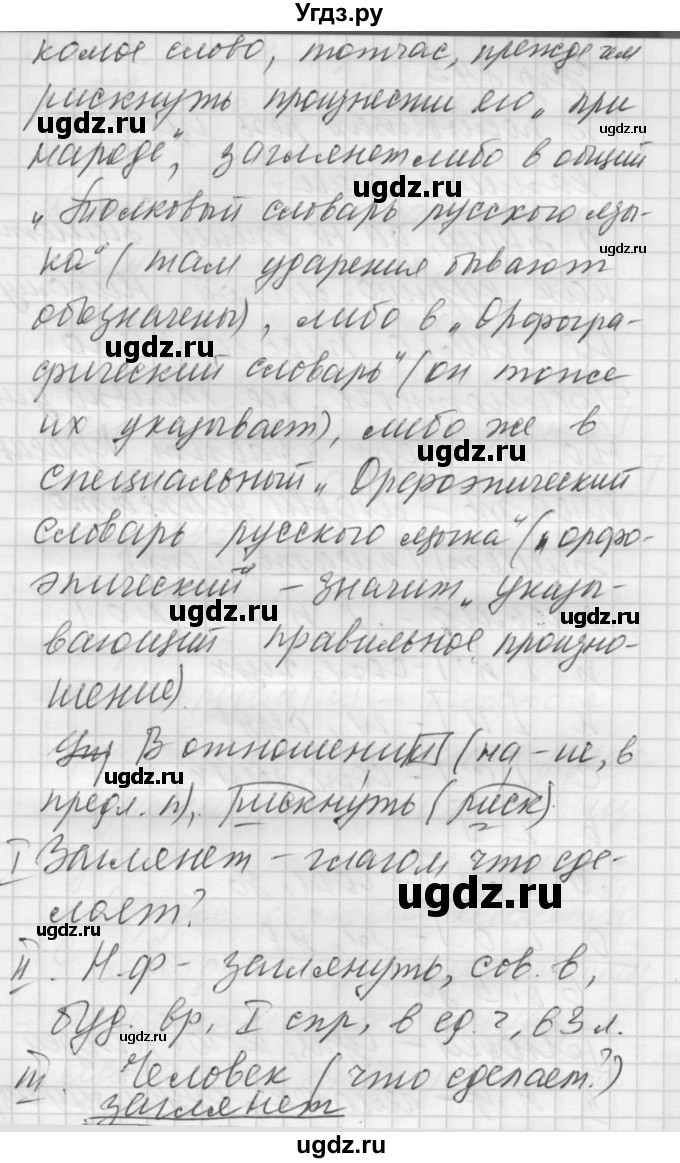 Угдз.ру
комое слово, тотчас, прежде чем
рискнуть произнести его „при
ugdz.ru
ugdz.ru
народе“, заглянет либо в общий
ugdz.ru
„Толковый словарь русского язы-
ugdz.ru
ка“ (там ударения бывают
обозначены), либо в „Орфогра-
ugdz.ru
фический словарь“ (он тоже
их указывает), либо же в
ugdz.ru
специальный „Орфоэпический
словарь русского языка“ („орфо-
эпический“ – значит „указы-
ugdz.ru
ugdz.ru
вающий правильное произно-
шение).
В отношении (на -ие, в
ugdz.ru
предл. п), рискнуть (риск).
I Заглянет – глагол что сде-
ugdz.ru
лает?
ugdz.ru
II. Н.ф – заглянуть, сов. в,
буд. вр, I спр, в ед. ч, в 3 л.
ugdz.ru
ugdz.ru
III. Человек (что сделает?)
заглянет
ugdz.ru